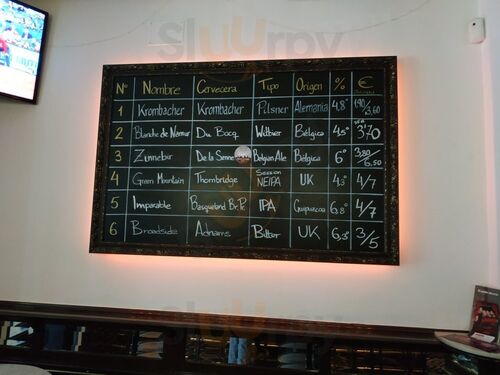 Sluurpy
Nº Nombre Cervecera Tipo Origen % €
1 Krombacher Krombacher Pilsner Alemania 4,8° 1,90/3,60
2 Blanche de Namur Du Bocq Witbier Bélgica 4,5° 3'70
3 Zinnebir De la Senne Belgian Ale Bélgica 6° 3,80/6,50
4 Green Mountain Thornbridge Session NEIPA UK 4,3° 4/7
5 Imparable Basqueland Br. Pr. IPA Guipuzcoa 6,8° 4/7
6 Broadside Adnams Bitter UK 6,3° 3/5
sluurpy